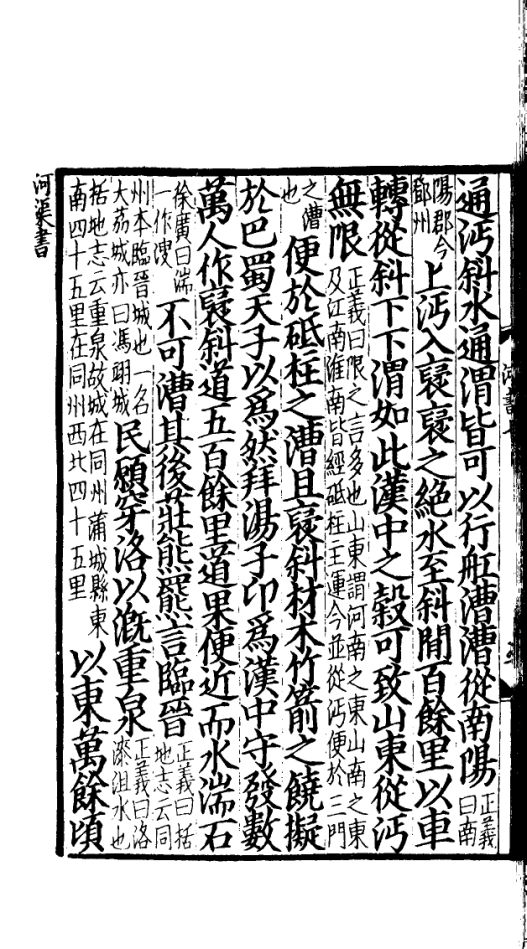 通沔斜水通渭皆可以行舩漕漕從南陽正義曰南
陽郡今鄧州上沔入褒褒之絕水至斜間百餘里以車
轉從斜下下渭如此漢中之穀可致山東從沔
無限正義曰限之言多也山東謂河南之東山南之東
及江南淮南皆經砥柱主運今並從沔便於三門
之漕也便於砥柱之漕且褒斜材木竹箭之饒擬
於巴蜀天子以爲然拜湯子卬爲漢中守發數
萬人作褒斜道五百餘里道果便近而水湍石
徐廣曰湍一作溲不可漕其後莊熊羆言臨晉正義曰括地志云同
州本臨晉城也一名大荔城亦曰馮翊城民願穿洛以漑重泉正義曰洛漆沮水也
括地志云重泉故城在同州蒲城縣東南四十五里在同州西北四十五里以東萬餘頃
河渠書